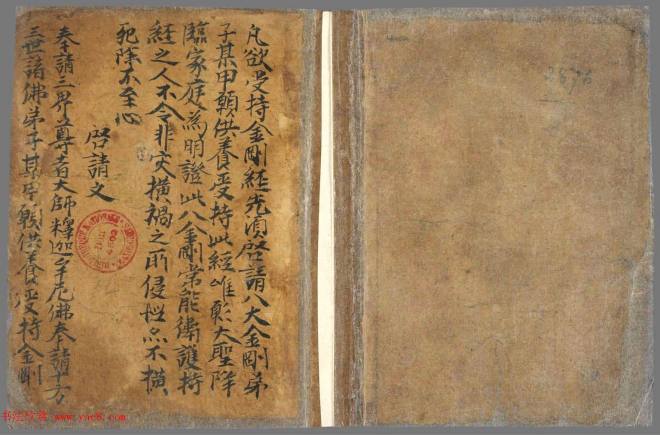 凡欲受持金剛経先湏啓請八大金剛弟
子某甲願供養受持此經唯願大聖降
臨家庭為明證此八金剛常能衛護持
經之人不令非灾橫禍之所侵惱亦不橫
死除不至心
啓請文
奉請三界尊者大師釋迦牟尼佛奉請十方
三世諸佛弟子某甲願供養受持金剛
书法欣赏 www.yac8.com